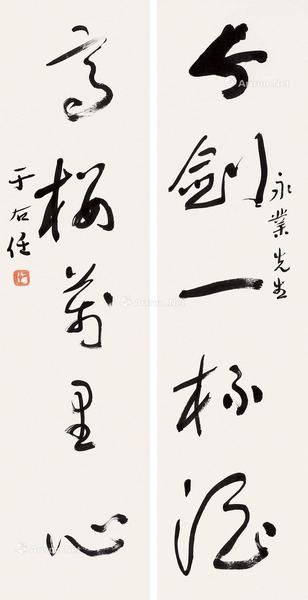 永業先生
書劍一杯酒
高樓萬里心
于右任